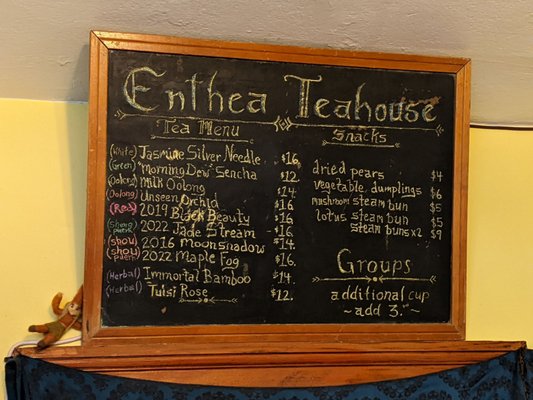 Enthea Teahouse
Tea Menu
(White) Jasmine Silver Needle $16.
(Green) "Morning Dew" Sencha $12.
(Oolong) Milk Oolong $14.
(Oolong) Unseen Orchid $16.
(Red) 2019 Black Beauty $16.
(Sheng puerh) 2022 Jade Stream $16.
(shou) 2016 Moonshadow $14.
(shou puerh) 2022 Maple Fog $16.
(Herbal) Immortal Bamboo $14.
(Herbal) Tulsi Rose $12.
Snacks
dried pears $4
vegetable dumplings $6
mushroom steam bun $5
lotus steam bun $5
steam buns x2 $9
Groups
additional cup
~ add 3. ~